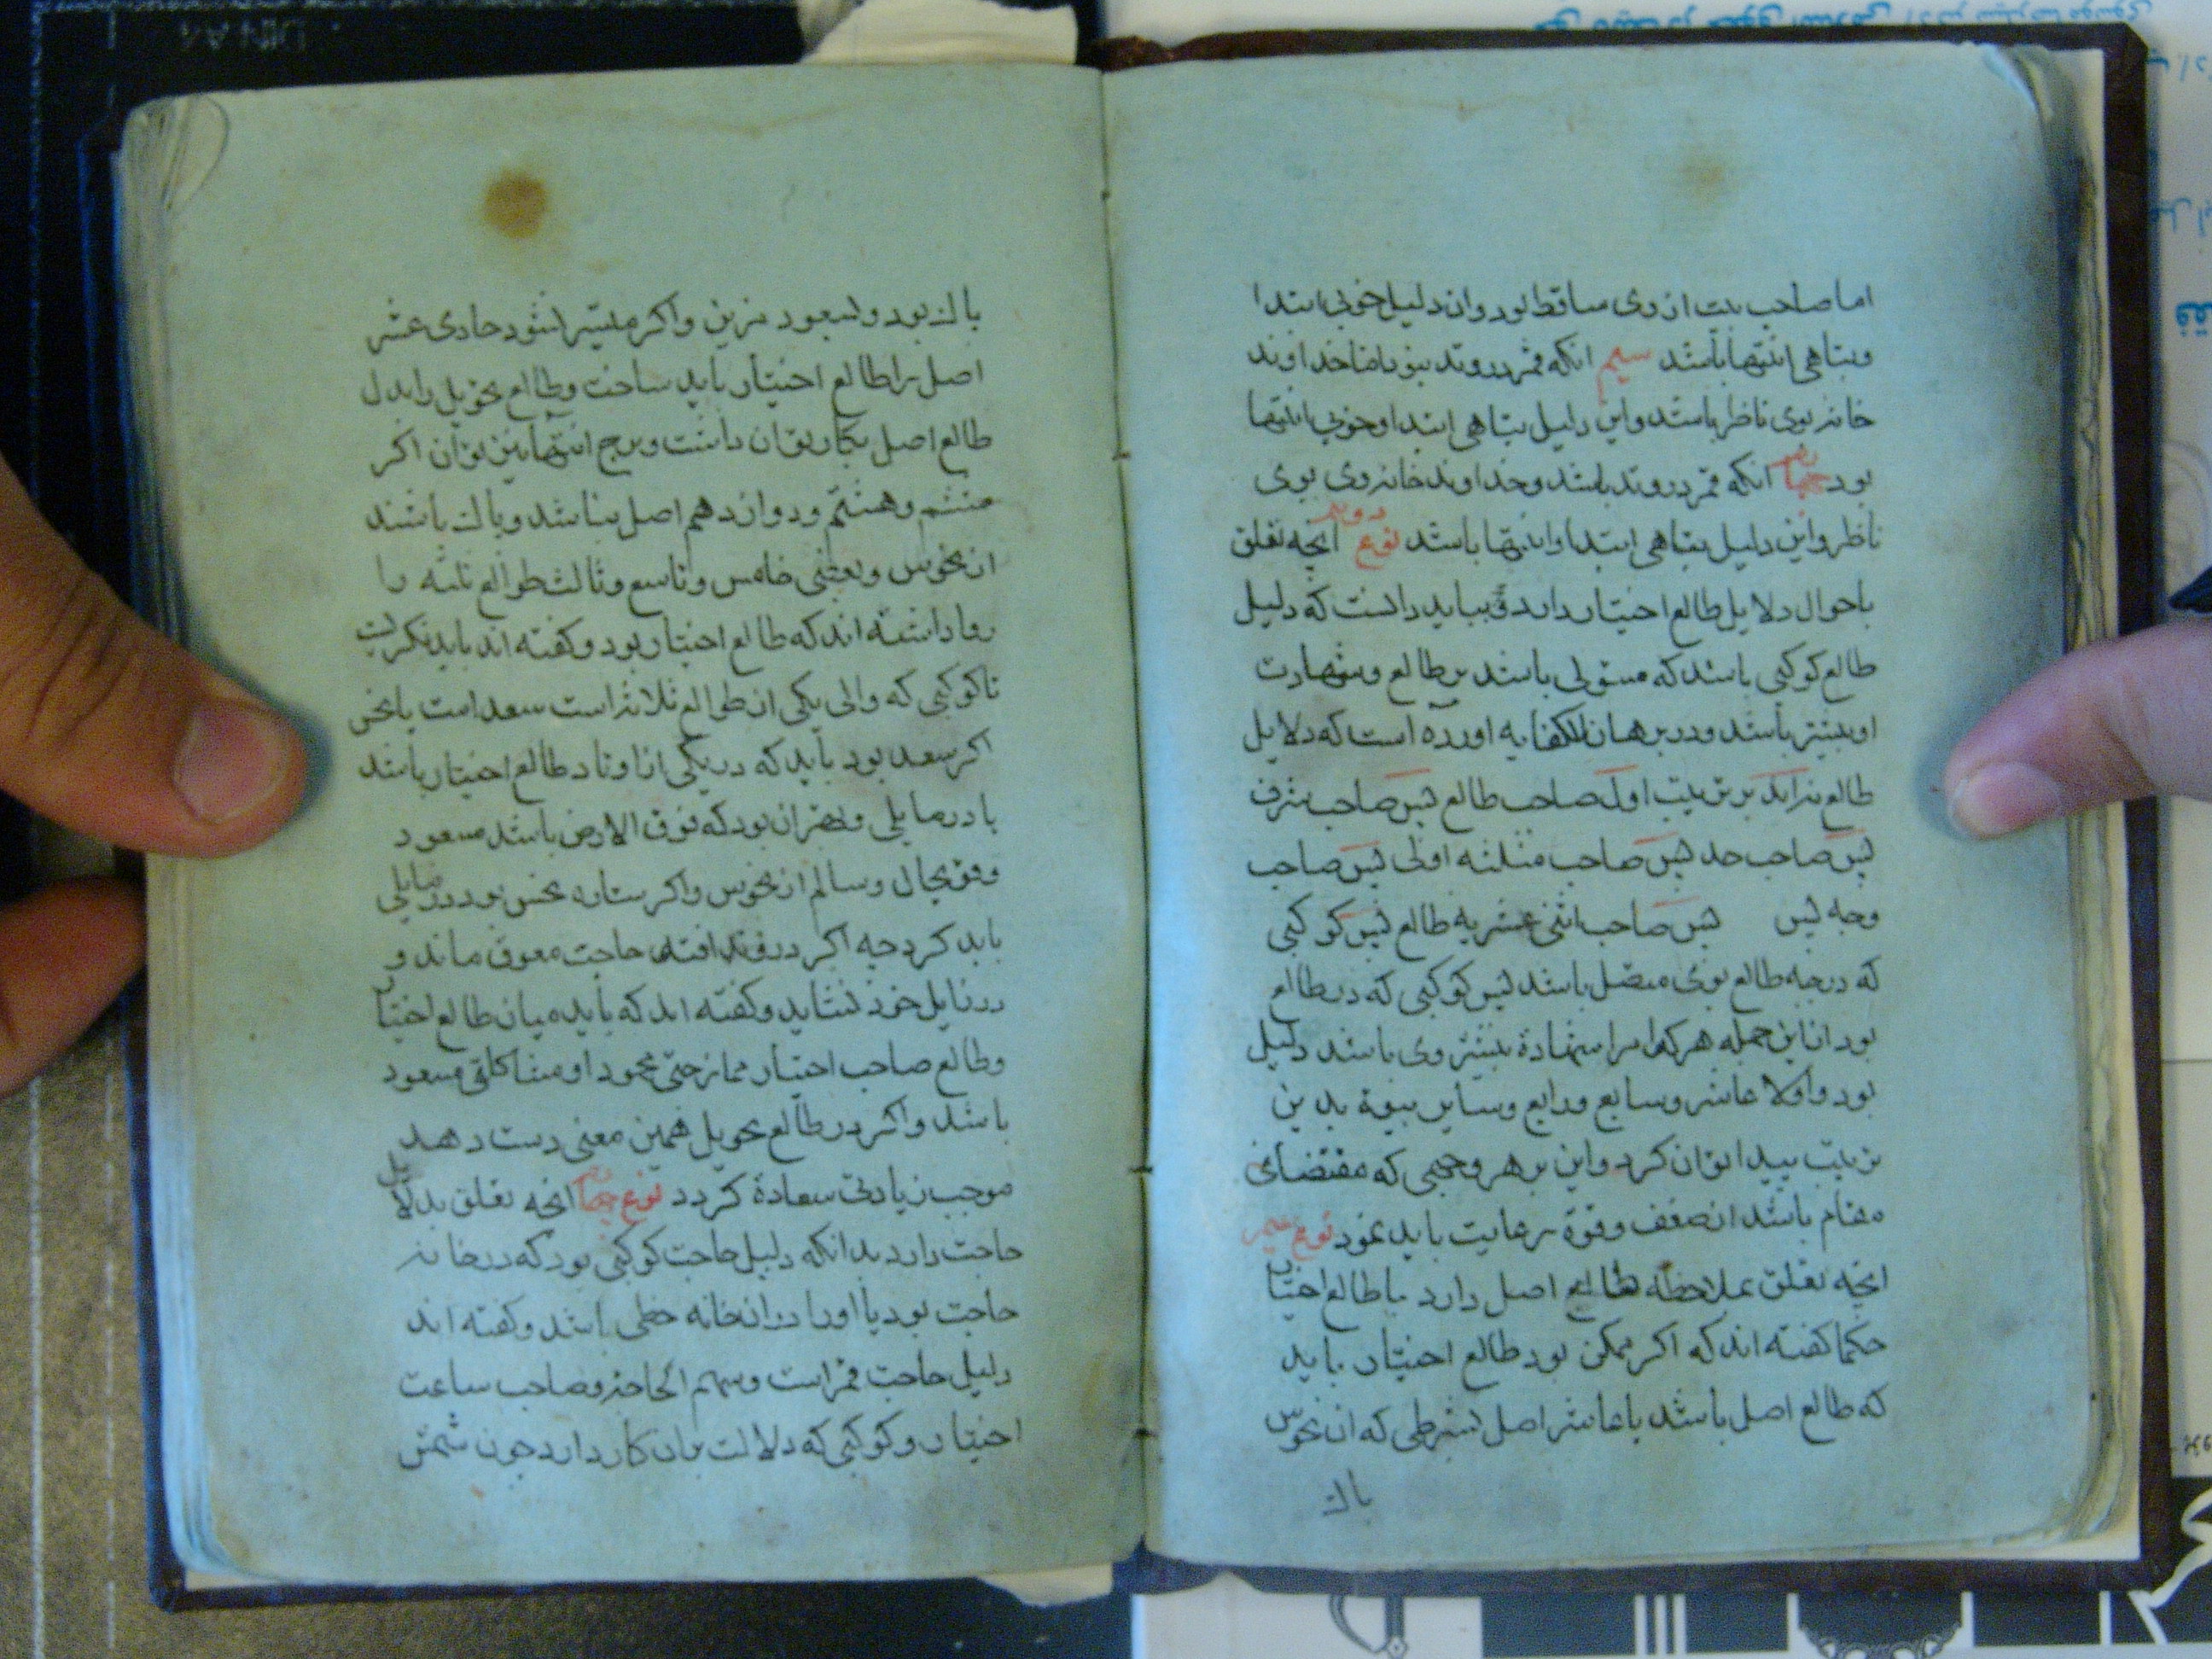 اما صاحب بیت از وی ساقط بود و ان دلیل خوبی ابتدا
و تباهی انتها باشد سیم انکه قمر در وتد بود اما خداوند
خانه بوی ناظر باشد و این دلیل تباهی ابتدا و خوبی انتها
بود چهارم انکه قمر در وتد باشد و خداوند خانه وی بوی
ناظر و این دلیل تباهی ابتدا و انتها باشد نوع دویم انچه تعلق
باحوال دلایل طالع اختیار دارد بباید دانست که دلیل
طالع کوکبی باشد که مستولی باشد بر طالع و شهادت
او بیشتر باشد و در برهان الکفایه اورده است که دلایل
طالع بترتیب اول صاحب طالع پس صاحب شرف
پس صاحب حد پس صاحب مثلثه اولی پس صاحب
وجه پس پس صاحب اثنی عشریه طالع پس کوکبی
که درجه طالع بوی متصل باشد پس کوکبی که در طالع
بود از این جمله هر کدام را شهادة بیشتر وی باشد دلیل
بود و اولا عاشر و سابع و رابع و سایر بیوة بدین
ترتیب پیدا توان کرد و این بر هر وجهی که مقتضای
مقام باشد از ضعف و قوة رعایت باید نمود نوع سیم
انچه تعلق بملاحظه طالع اصل دارد با طالع اختیار
حکما کفته اند که اکر ممکن بود طالع اختیار باید
که طالع اصل باشد یا عاشر اصل بشرطی که از نحوس
پاک
پاک بود و بسعود مزین و اکر میسر نشود حادی عشر
اصل را طالع اختیار باید ساخت و طالع تحویل را بدل
طالع اصل بکار توان داشت و برج انتها نیز توان اکر
ششم و هشتم و دوازدهم اصل نباشد و پاک باشند
از نحوس و بعضی خامس و تاسع و ثالث طوالع ثلثه را
روا داشته اند که طالع اختیار بود و کفته اند باید نکریست
تا کوکبی که والی یکی از طوالع ثلاثه است سعد است یا نحس
اکر سعد بود باید که در یکی از اوتاد طالع اختیار باشد
یا در مایلی و بهتر ان بود که فوق الارض باشد مسعود
و قوی حال و سالم از نحوس و اکر ستاره نحس بود در مایلی
باید کرد چه اکر در وتد افتد حاجت معوق ماند و
در زایل خود نشاید و کفته اند که باید میان طالع اختیار
و طالع صاحب اختیار ممازجتی محمود او مشاکلتی مسعود
باشد و اکر در طالع تحویل همین معنی دست دهد
موجب زیادتی سعادة کردد نوع چهارم انچه تعلق بدلایل
حاجت دارد بدانکه دلیل حاجت کوکبی بود که در خانه
حاجت بود یا او را در انخانه حظی باشد و کفته اند
دلیل حاجت قمر است و سهم الحاجة و صاحب ساعت
اختیار و کوکبی که دلالت بران کار دارد چون شمس